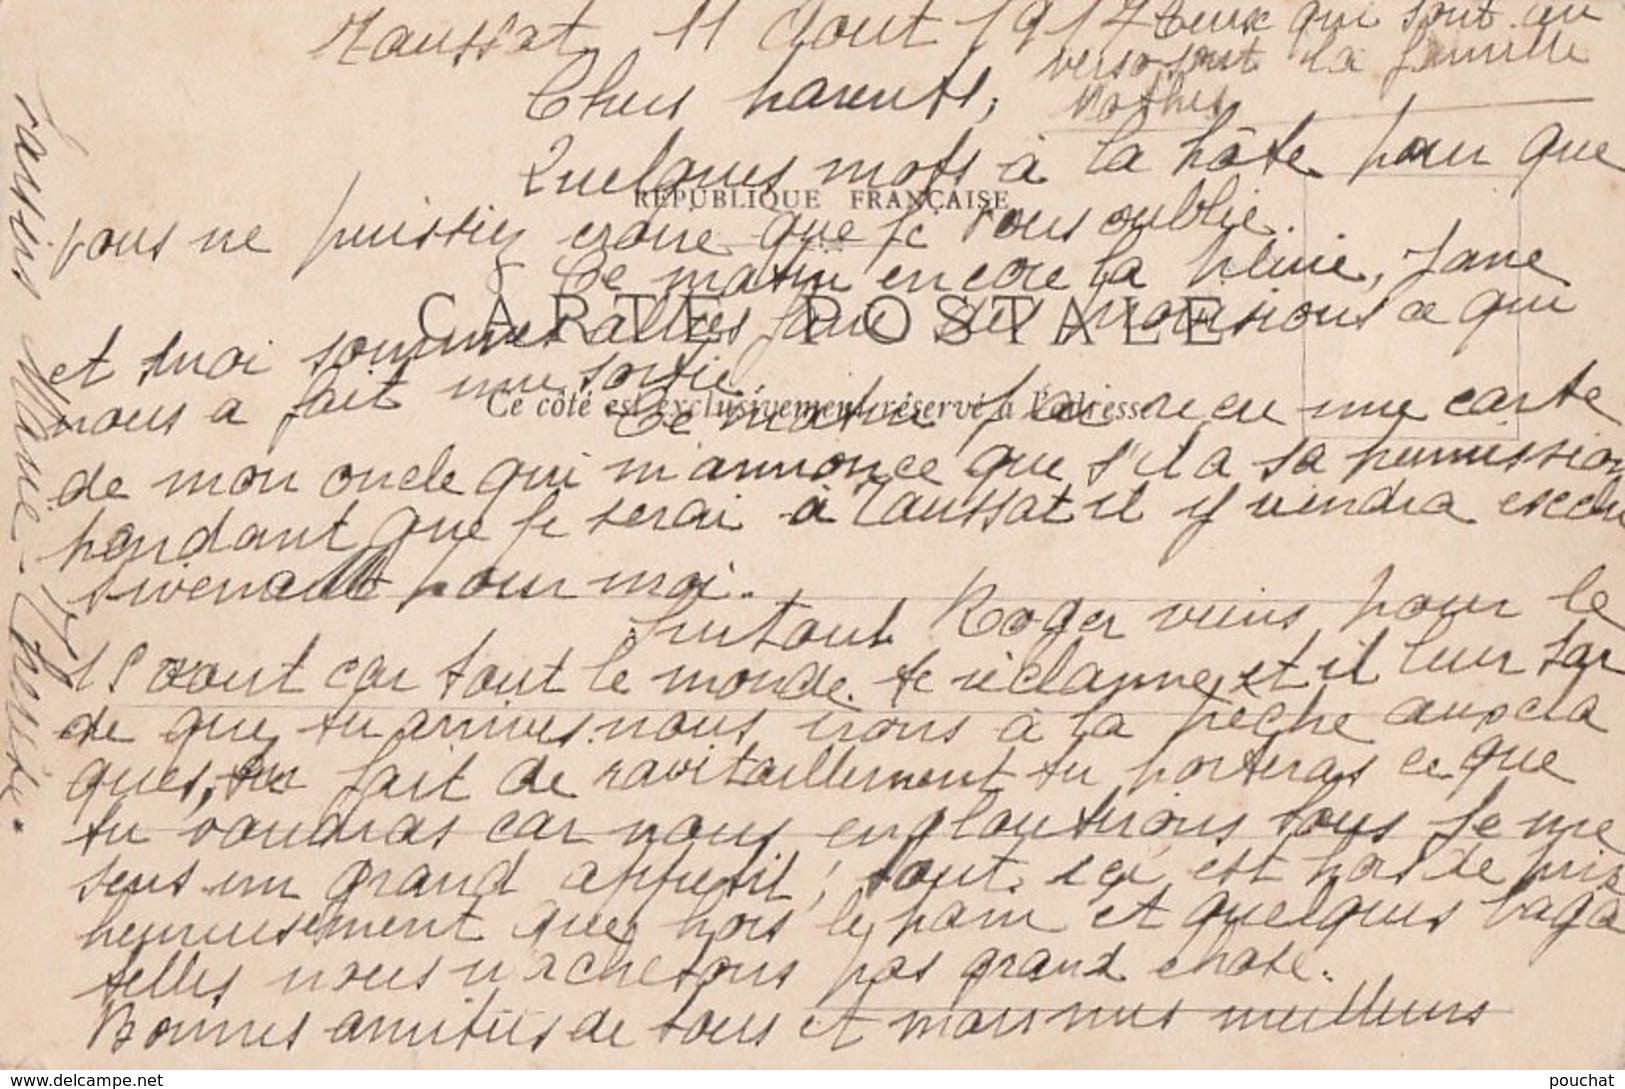 Taussat, 11 Aout 1917
Ceux qui sont au
verso sont la famille
Mothes
Chers parents,
Quelques mots à la hâte pour que
RÉPUBLIQUE FRANÇAISE
vous ne puissiez croire que je vous oublie.
Ce matin encore la pluie, Jane
CARTE POSTALE
et moi sommes allées faire des provisions ce qui
nous a fait une sortie.
Ce côté est exclusivement réservé à l'adresse
Ce matin j'ai reçu une carte
de mon oncle qui m'annonce que s'il a sa permission
pendant que je serai à Taussat il y viendra exclu
sivement pour moi.
Surtout Roger viens pour le
15 aout car tout le monde te réclame, et il leur tar
de que tu arrives. nous irons à la pêche aux cra
ques, en fait de ravitaillement tu porteras ce que
tu voudras car nous engloutirons tous je me
sens un grand appetit, tout ici est hors de prix
heureusement que hors le pain et quelques baga
telles nous n'achetons pas grand chose.
Bonnes amitiés de tous et mes meilleurs
baisers Marie-Thérèse.
delcampe.net
pouchat